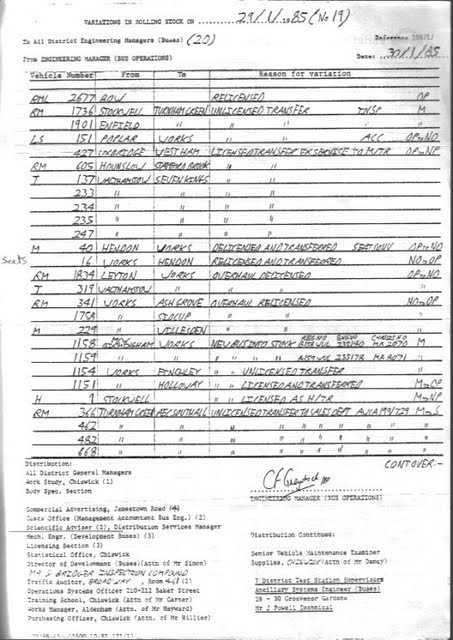 VARIATIONS IN ROLLING STOCK ON 29/1/ 1985 (No 19)
To All District Engineering Managers (Buses) (20)
Reference
From ENGINEERING MANAGER (BUS OPERATIONS) Date: 30/1/85
Vehicle Number From To Reason for variation
RML 2677 BOW RELICENSED OP
RM 1736 STOCKWELL TURNHAM GREEN UNLICENSED TRANSFER INSP M
1901 ENFIELD " " "
LS 151 POPLAR WORKS " " ACC OP to NO
427 UXBRIDGE WEST HAM LICENSED TRANSFER EX SERVICE TO M/TR OP to NP
RM 605 HOUNSLOW STAMFORD BROOK " "
T 137 WALTHAMSTOW SEVEN KINGS " "
233 " " " "
234 " " " "
235 " " " "
247 " " " "
M 40 HENDON WORKS DELICENSED AND TRANSFERRED OP to NO
Seats 16 WORKS HENDON RELICENSED AND TRANSFERRED NO to OP
RM 1834 LEYTON WORKS OVERHAUL DELICENSED OP to NO
T 319 WALTHAMSTOW " " "
RM 341 WORKS ASH GROVE OVERHAUL RELICENSED NO to OP
1758 " SIDCUP " "
M 229 " WILLESDEN " "
REG NO ENG NO CHASSIS NO
1158 WORKS NEW BUS INTO STOCK M
1159 " " " " "
1154 WORKS FINCHLEY " " UNLICENSED TRANSFER
1151 " HOLLOWAY " " LICENSED AND TRANSFERRED M to OP
H 9 STOCKWELL " " LICENSED AS H/TR M to NP
RM 366 TURNHAM GREEN AEC SOUTHALL UNLICENSED TRANSFER TO SALES DEPT M to S
462 " " " " " " "
482 " " " " " " "
668 " " " " " " "
CONT OVER:-
Distribution:
All District General Managers
Work Study, Chiswick (1)
Body Spec. Section
ENGINEERING MANAGER (BUS OPERATIONS)
Commercial Advertising, Jamestown Road
Costs Office (Management Accountant Bus Eng.) (2)
Scientific Adviser (2), Distribution Services Manager
Mech. Engr. (Development Buses) (3)
Licensing Section (3)
Statistical Office, Chiswick
Director of Development (Buses) (Attn of Mr Simon)
MR S BRIDGER INSPECTION COMPOUND
Traffic Auditor, BROADWAY, Room
Operations Systems Officer 210-212 Baker Street
Training School, Chiswick (Attn of Mr Carter)
Works Manager, Aldenham (Attn of Mr Hayward)
Purchasing Officer, Chiswick (Attn of Mr Willier)
Distribution Continued:
Senior Vehicle Maintenance Examiner
Supplies, CHISWICK (Attn of Mr Dancy)
7 District Test Station Supervisors
Ancillary Systems Engineer (Buses)
28 - 30 Grosvenor Gardens
Mr J Powell Technical